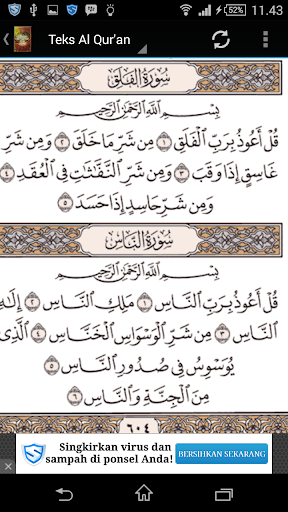 52% 11.43
Teks Al Qur'an
سورة الفلق
بسم الله الرحمن الرحيم
قُلْ أَعُوذُ بِرَبِّ ٱلْفَلَقِ ١ مِن شَرِّ مَا خَلَقَ ٢ وَمِن شَرِّ
غَاسِقٍ إِذَا وَقَبَ ٣ وَمِن شَرِّ ٱلنَّفَّٰثَٰتِ فِى ٱلْعُقَدِ ٤
وَمِن شَرِّ حَاسِدٍ إِذَا حَسَدَ ٥
سورة الناس
بسم الله الرحمن الرحيم
قُلْ أَعُوذُ بِرَبِّ ٱلنَّاسِ ١ مَلِكِ ٱلنَّاسِ ٢ إِلَٰهِ
ٱلنَّاسِ ٣ مِن شَرِّ ٱلْوَسْوَاسِ ٱلْخَنَّاسِ ٤ ٱلَّذِى
يُوَسْوِسُ فِى صُدُورِ ٱلنَّاسِ ٥
مِنَ ٱلْجِنَّةِ وَٱلنَّاسِ ٦
٦٠٤
Singkirkan virus dan
sampah di ponsel Anda!
BERSIHKAN SEKARANG